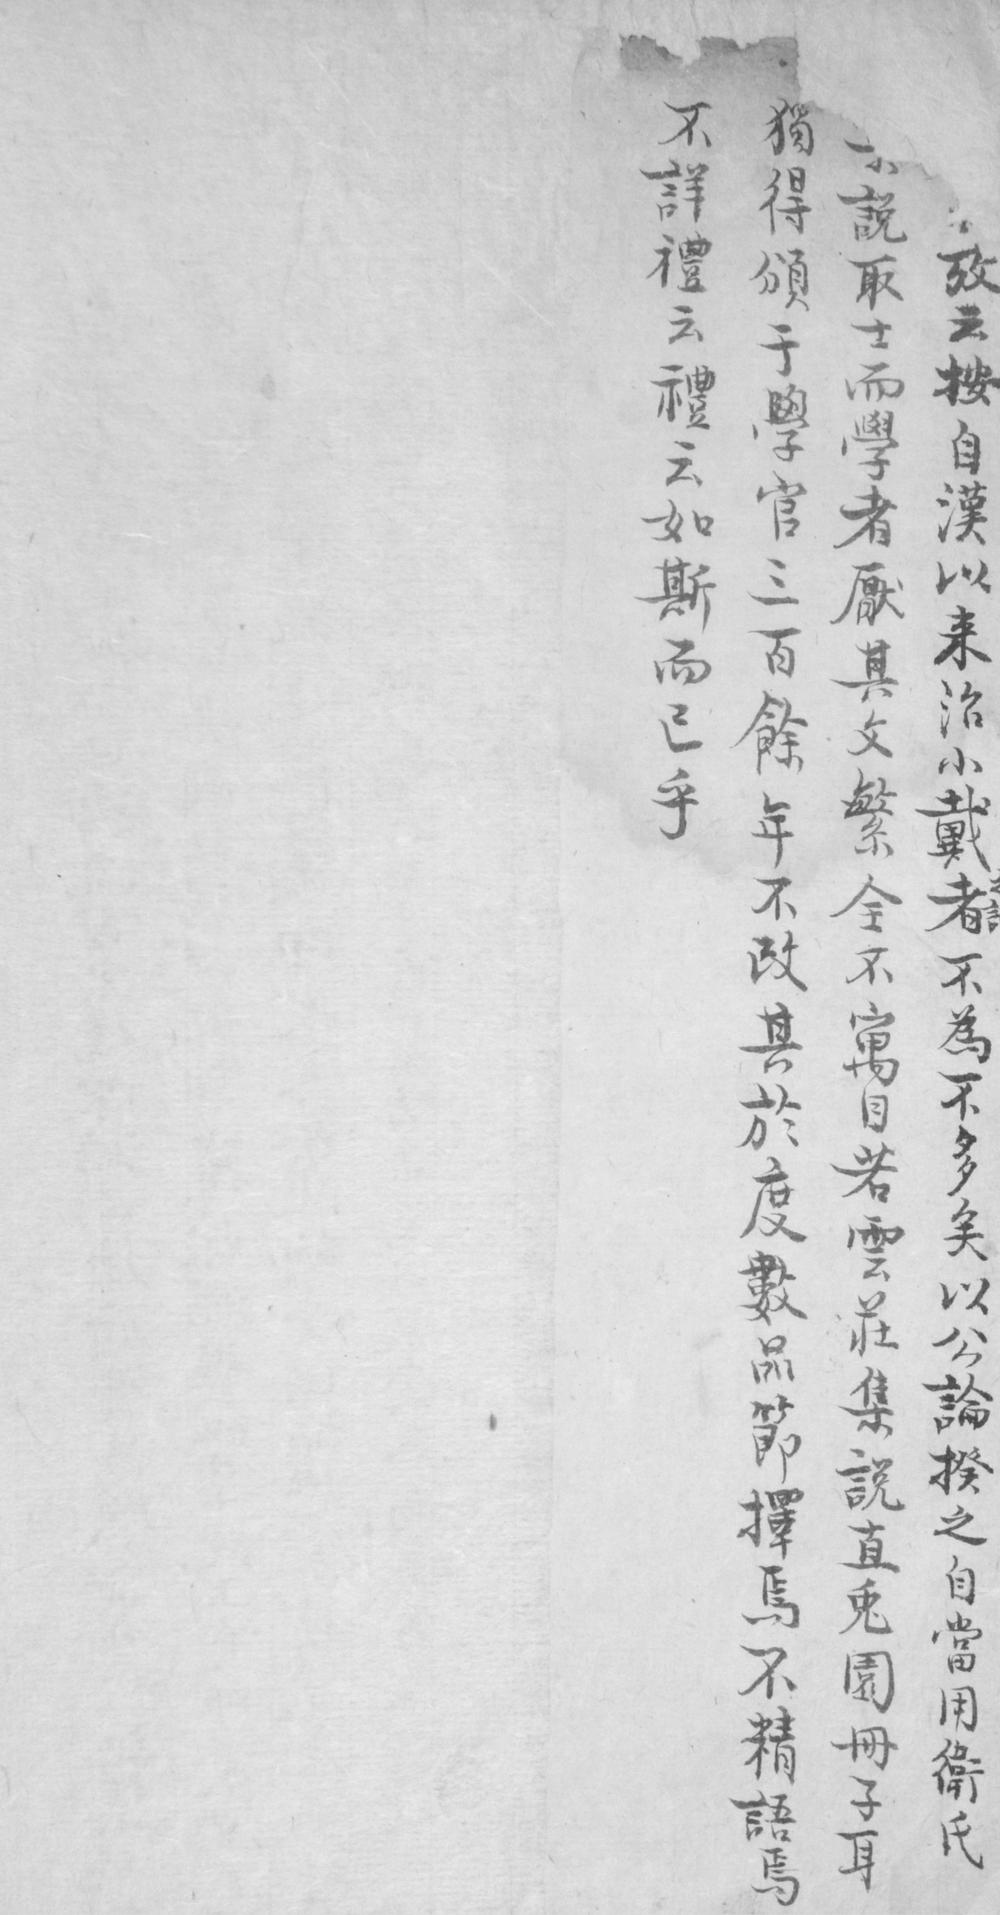 攷云按自漢以来治小戴者之記不為不多矣以公論揆之自當用衛氏
説取士而學者厭其文繁全不寓目若雲莊集説直兎園冊子耳
獨得頒于學官三百餘年不改其於度數品節擇焉不精語焉
不詳禮云禮云如斯而已乎